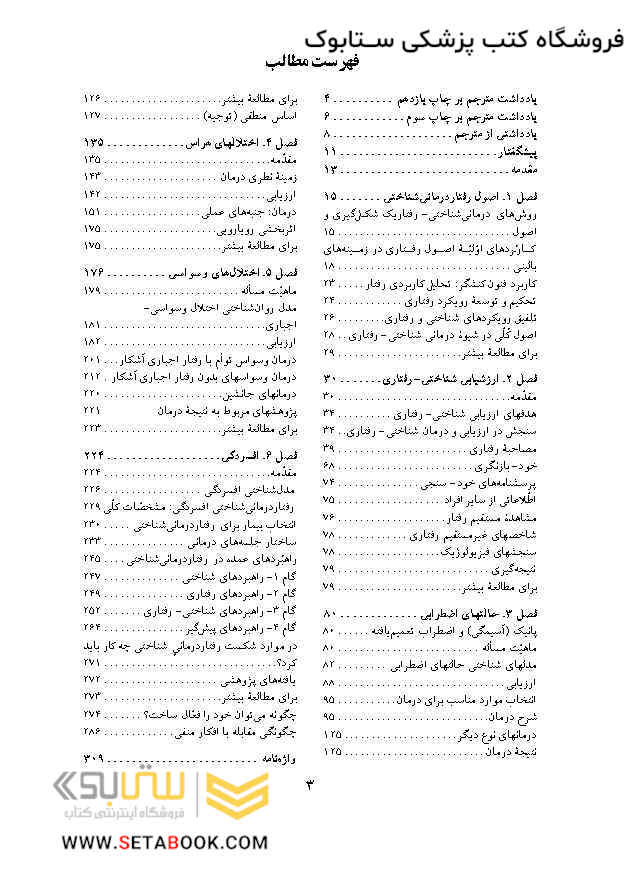 فروشگاه کتب پزشکی ستابوک
فهرست مطالب
یادداشت مترجم بر چاپ یازدهم .......... ۴
یادداشت مترجم بر چاپ سوم ............ ۶
یادداشتی از مترجم .................... ۸
پیشگفتار .......................... ۱۱
مقدمه ............................ ۱۳
فصل ۱. اصول رفتاردرمانی‌شناختی ....... ۱۵
روش‌های درمانی‌شناختی- رفتاریک شکل‌گیری و
اصول ............................ ۱۵
کاربردهای اوّلیّهٔ اصول رفتاری در زمینه‌های
بالینی ............................ ۱۸
کاربرد فنون کنشگر: تحلیل کاربردی رفتار ..... ۲۳
تحکیم و توسعهٔ رویکرد رفتاری ............ ۲۴
تلفیق رویکردهای شناختی و رفتاری ......... ۲۶
اصول کلّی در شیوهٔ درمانی شناختی- رفتاری .. ۲۸
برای مطالعهٔ بیشتر .................... ۲۹
فصل ۲. ارزشیابی شناختی- رفتاری ....... ۳۰
مقدّمه ............................ ۳۰
هدفهای ارزیابی شناختی- رفتاری .......... ۳۴
سنجش در ارزیابی و درمان شناختی- رفتاری .. ۳۴
مصاحبهٔ رفتاری ...................... ۳۹
خود- بازنگری ...................... ۶۸
پرسشنامه‌های خود- سنجی .............. ۷۴
اطّلاعاتی از سایر افراد .................. ۷۵
مشاهدهٔ مستقیم رفتار .................. ۷۶
شاخصهای غیرمستقیم رفتاری ............ ۷۸
سنجشهای فیزیولوژیک ................ ۷۸
نتیجه‌گیری ........................ ۷۹
برای مطالعهٔ بیشتر .................... ۷۹
فصل ۳. حالتهای اضطرابی ............. ۸۰
پانیک (آسیمگی) و اضطراب تعمیم‌یافته ...... ۸۰
ماهیّت مسأله ...................... ۸۰
مدلهای شناختی حالتهای اضطرابی ......... ۸۲
ارزیابی .......................... ۸۸
انتخاب موارد مناسب برای درمان .......... ۹۵
شرح درمان ........................ ۹۵
درمانهای نوع دیگر .................... ۱۲۵
نتیجهٔ درمان ........................ ۱۲۵
برای مطالعهٔ بیشتر .................... ۱۲۶
اساس منطقی (توجیه) ................ ۱۲۷
فصل ۴. اختلالهای هراس ............. ۱۳۵
مقدّمه ............................ ۱۳۵
زمینهٔ نظری درمان .................... ۱۴۳
ارزیابی .......................... ۱۴۲
درمان: جنبه‌های عملی ................ ۱۵۱
اثربخشی رویارویی .................... ۱۷۵
برای مطالعهٔ بیشتر .................... ۱۷۵
فصل ۵. اختلال‌های وسواسی .......... ۱۷۶
ماهیّت مسأله ...................... ۱۷۹
مدل روان‌شناختی اختلال وسواسی-
اجباری .......................... ۱۸۱
ارزیابی .......................... ۱۸۲
درمان وسواس توأم با رفتار اجباری آشکار ... ۲۰۱
درمان وسواسهای بدون رفتار اجباری آشکار . ۲۱۲
درمانهای جانشین .................... ۲۲۰
پژوهشهای مربوط به نتیجهٔ درمان ۲۲۱
برای مطالعهٔ بیشتر .................... ۲۲۳
فصل ۶. افسردگی ................... ۲۲۴
مقدّمه ............................ ۲۲۴
مدل‌شناختی افسردگی ................ ۲۲۶
رفتاردرمانی‌شناختی افسردگی: مشخصّات کلّی ۲۲۹
انتخاب بیمار برای رفتاردرمانی‌شناختی ..... ۲۳۰
ساختار جلسه‌های درمانی .............. ۲۳۳
راهبُردهای عمده در رفتاردرمانی‌شناختی .... ۲۴۵
گام ۱- راهبردهای شناختی ............. ۲۴۷
گام ۲- راهبردهای رفتاری .............. ۲۴۹
گام ۳- راهبردهای شناختی- رفتاری ....... ۲۵۲
گام ۴- راهبردهای پیش‌گیر .............. ۲۶۴
در موارد شکست رفتاردرمانی شناختی چه کار باید
کرد؟ ............................ ۲۷۱
یافته‌های پژوهشی .................... ۲۷۲
برای مطالعهٔ بیشتر .................... ۲۷۳
چگونه می‌توان خود را فعّال ساخت؟ ....... ۲۷۴
چگونگی مقابله با افکار منفی ............ ۲۸۶
واژه‌نامه .......................... ۳۰۹
۳
ستابوک
فروشگاه اینترنتی کتاب
WWW.SETABOOK.COM